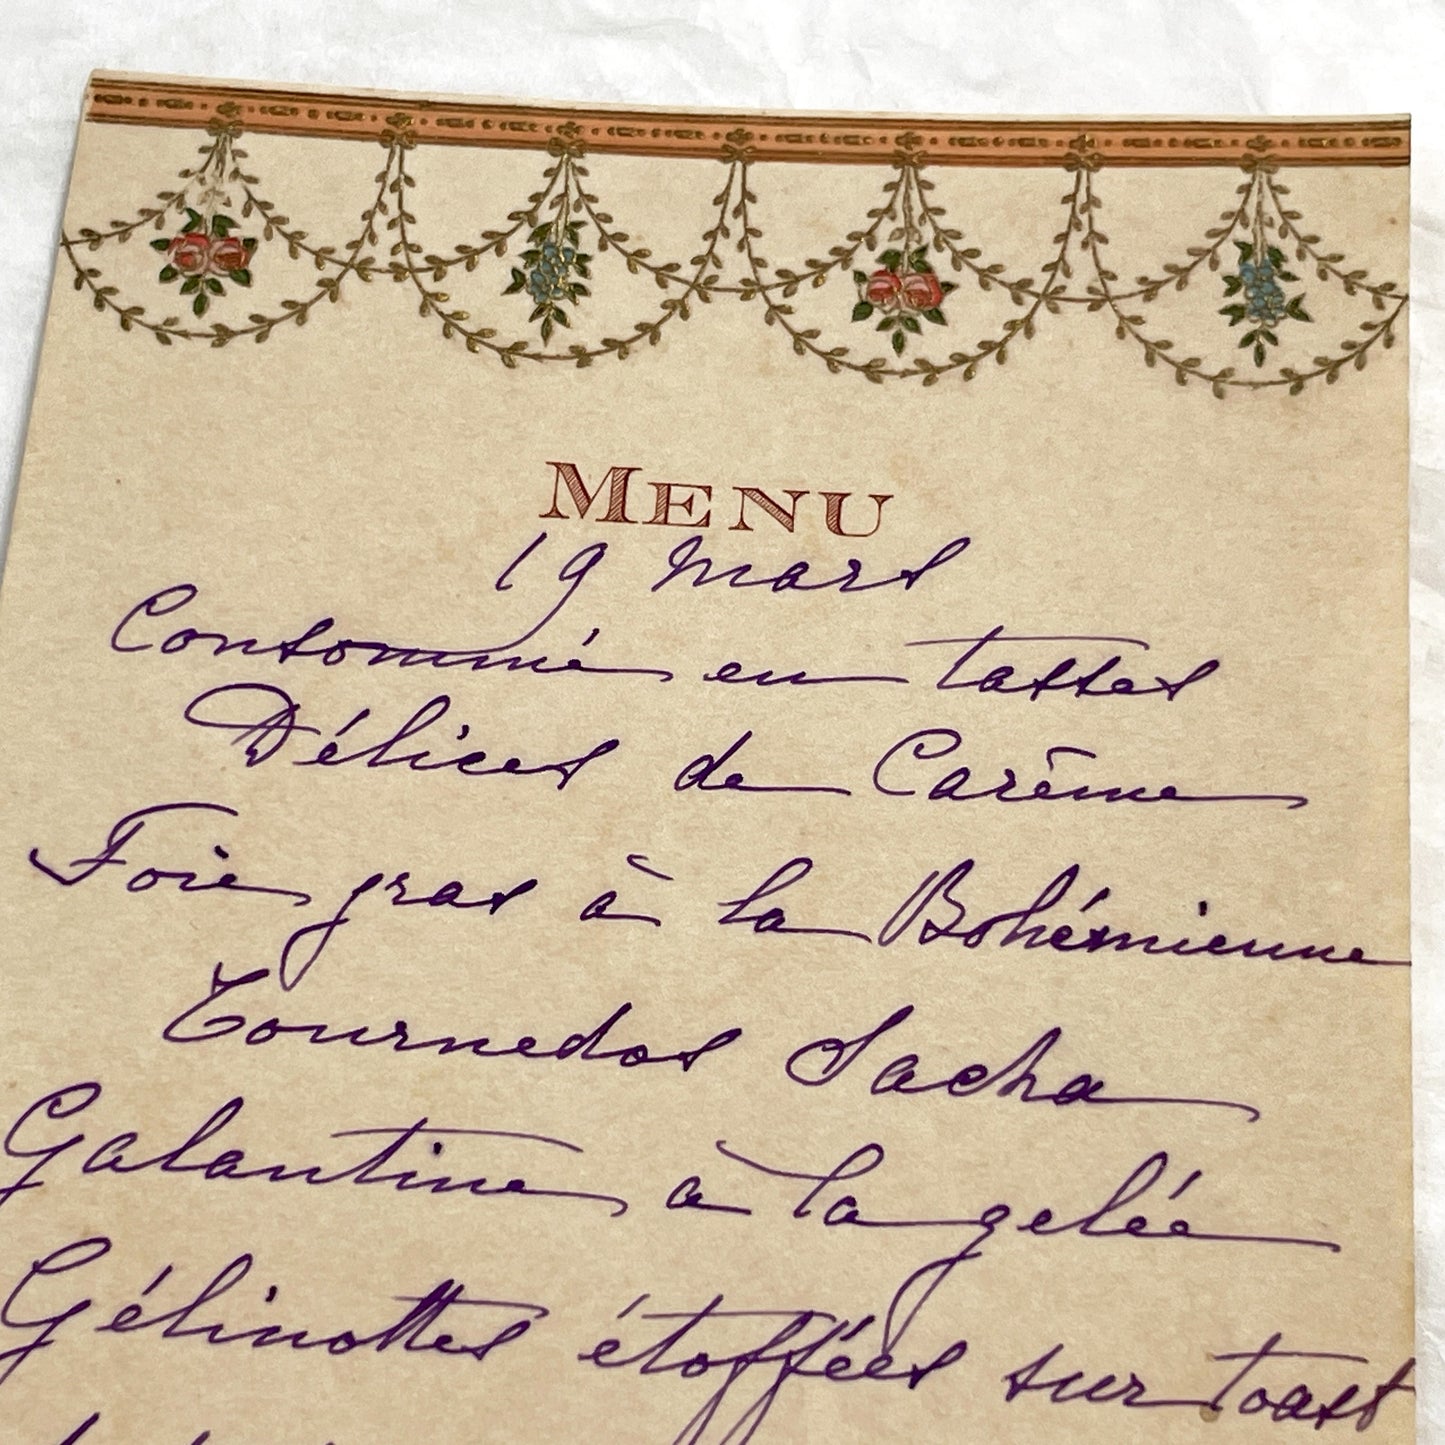 MENU
19 mars
Consommé en tasses
Délices de Carême
Foie gras à la Bohémienne
Tournedos Sacha
Galantine à la gelée
Gélinottes étoffées sur toast